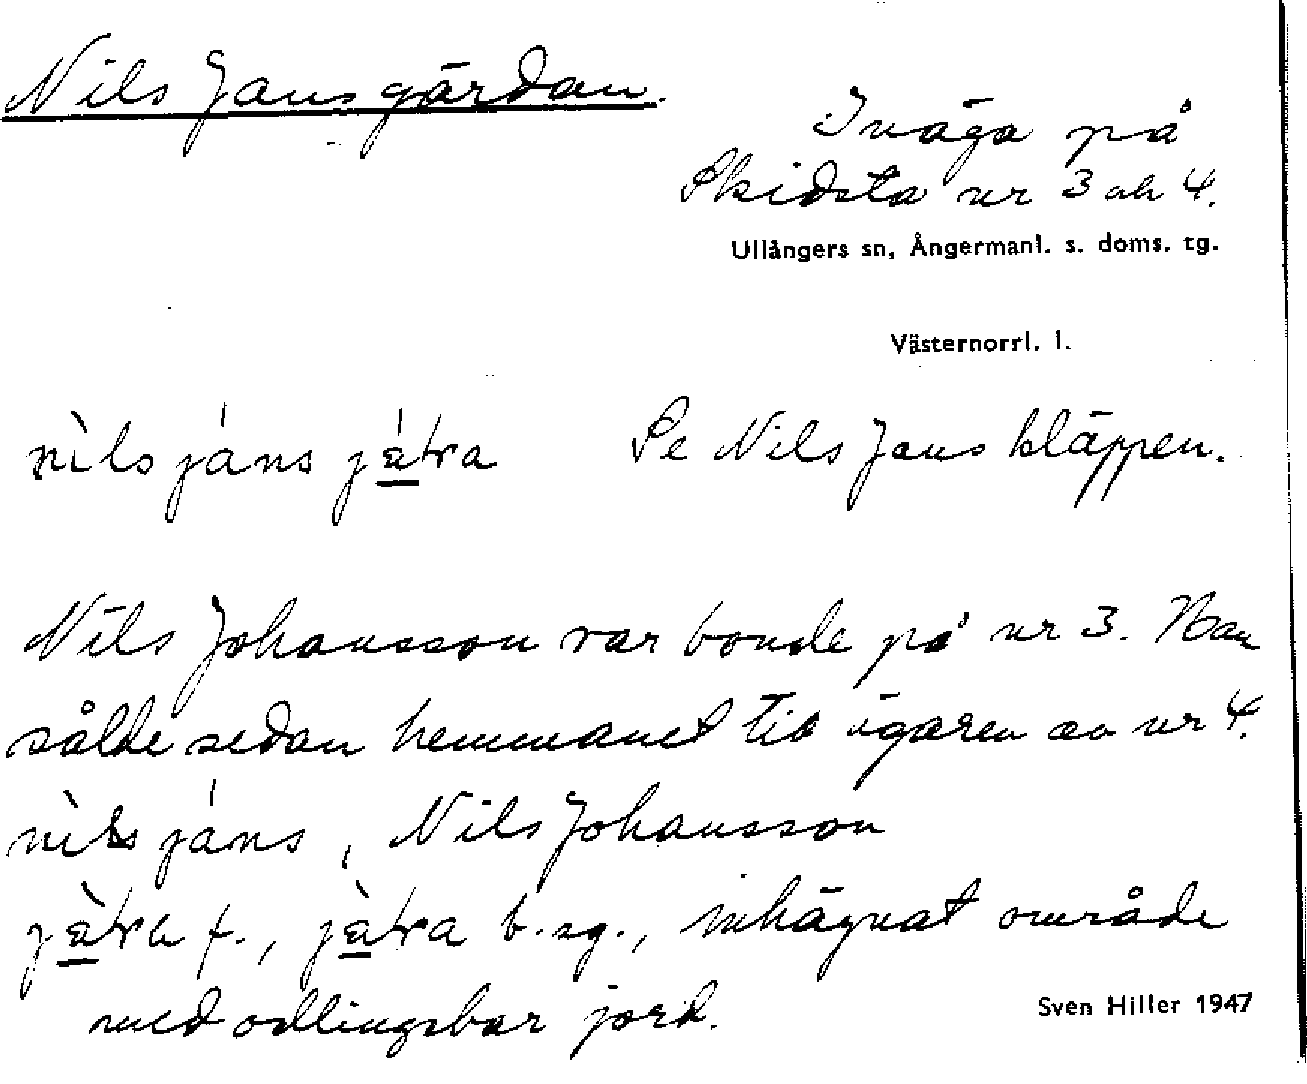 Nils Jansgärdan.
Inäga på
Skidsta nr 3 och 4.
Ullångers sn, Ångermanl. s. doms. tg.
Västernorrl. l.
nìls jáns Se Nils Janskläppen.
Nils Johansson var bonde på nr 3. Han
sålde sedan hemmanet till ägaren av nr 4.
nìls jáns, Nils Johansson
f., b. sg., inhägnat område
med odlingsbar jord.
Sven Hiller 1947